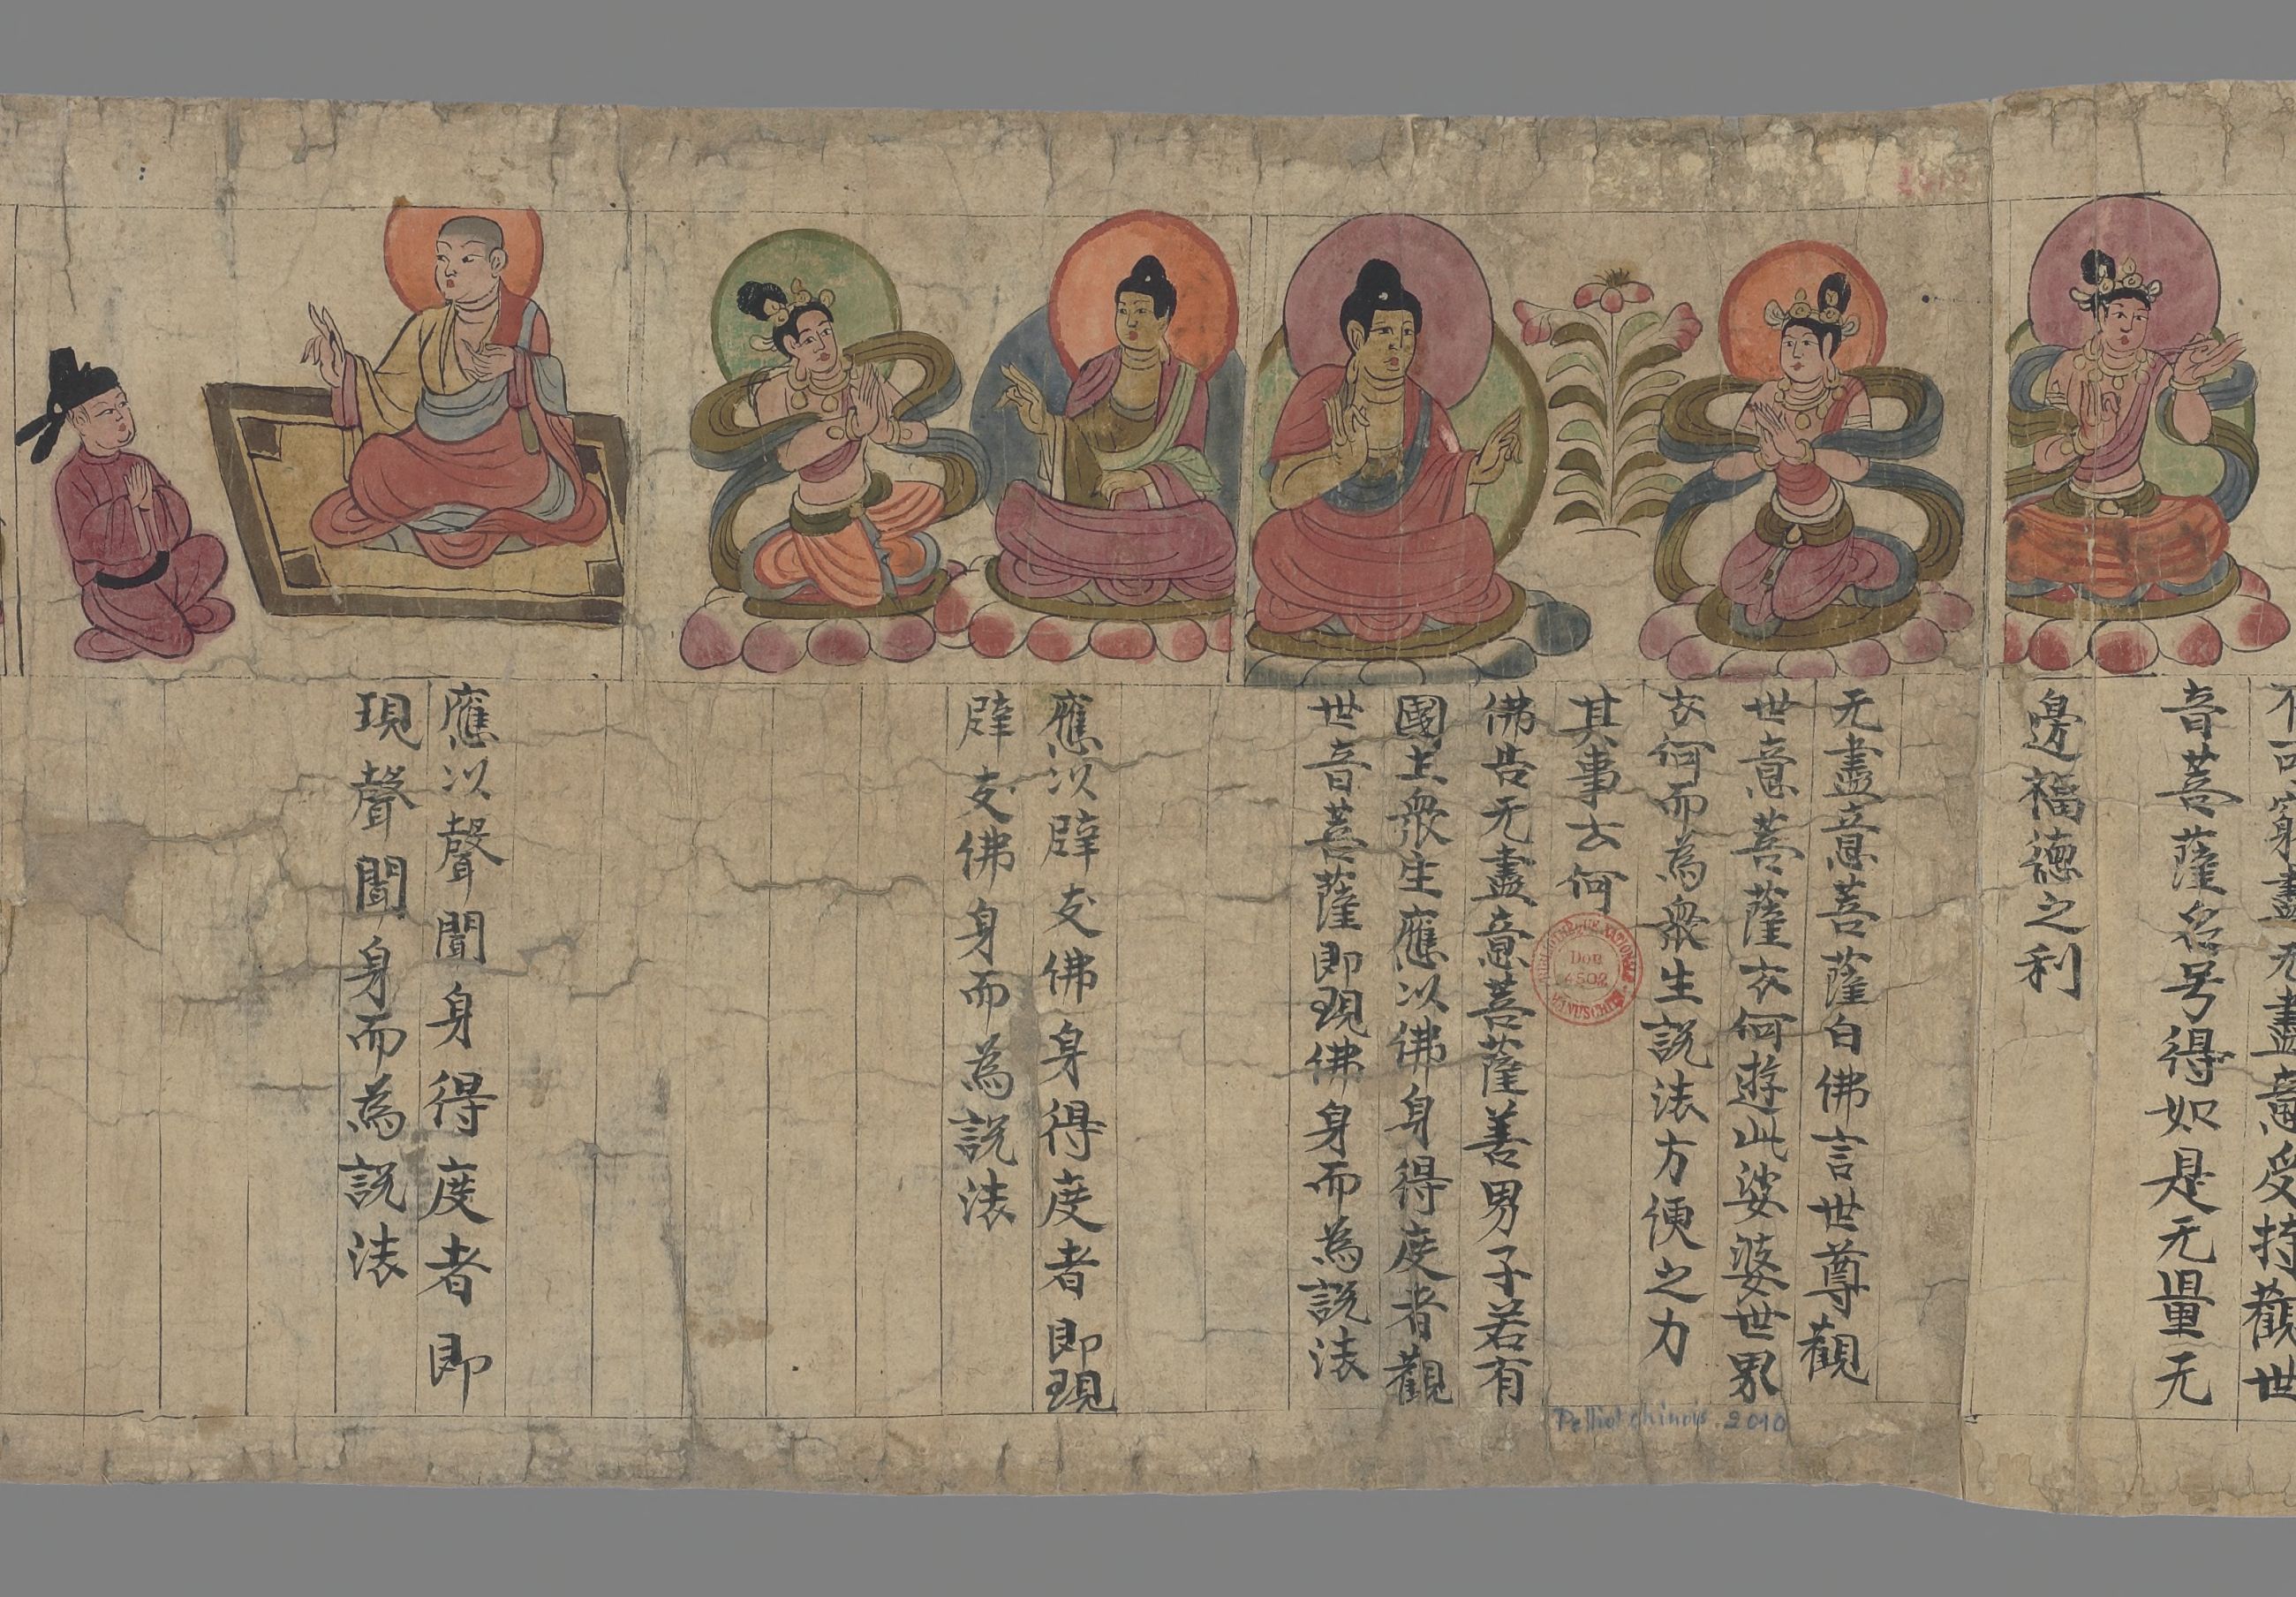 不可窮盡无盡意受持觀世
音菩薩名号得如是无量无
邊福德之利
无盡意菩薩白佛言世尊觀
世意菩薩云何遊此娑婆世界
云何而為衆生說法方便之力
其事云何
佛告无盡意菩薩善男子若有
國土衆生應以佛身得度者觀
世音菩薩即現佛身而為說法
應以辟支佛身得度者即現
辟支佛身而為說法
應以聲聞身得度者即
現聲聞身而為說法
Don
4502
MANUSCRITS
Pelliot chinois. 2010